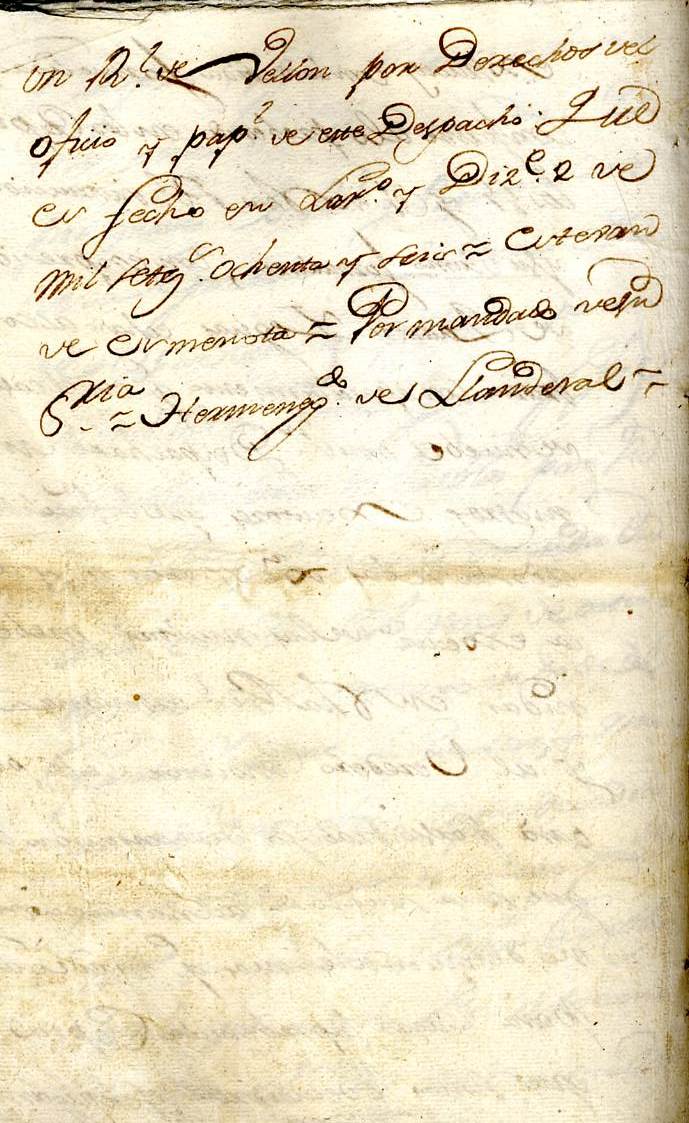 un R.l de Vellon por Derechos del
oficio y pap.l de este Despacho. Que
es fecho en Lar.o y Diz.e 2 de
mil Seteç.s Ochenta y seis = Esteran
de Esmenota = Por mandado de Su
S.xia = Hermeneg.do de Llanderal =